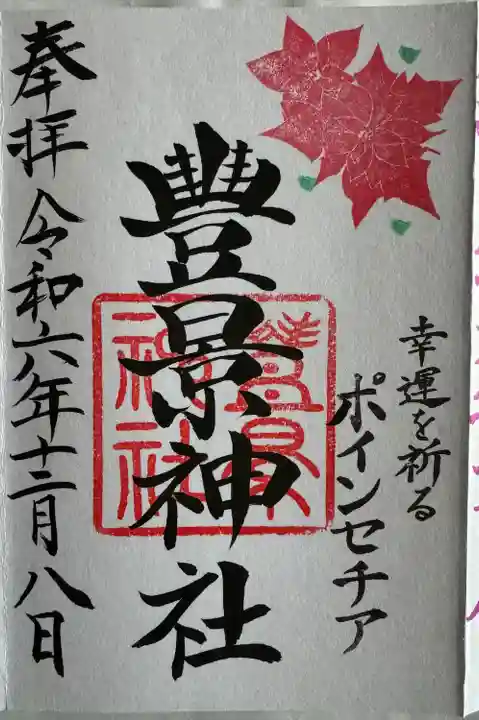 幸運を祈る
ポインセチア
豊景神社
豊景神社
奉拝 令和六年十二月八日